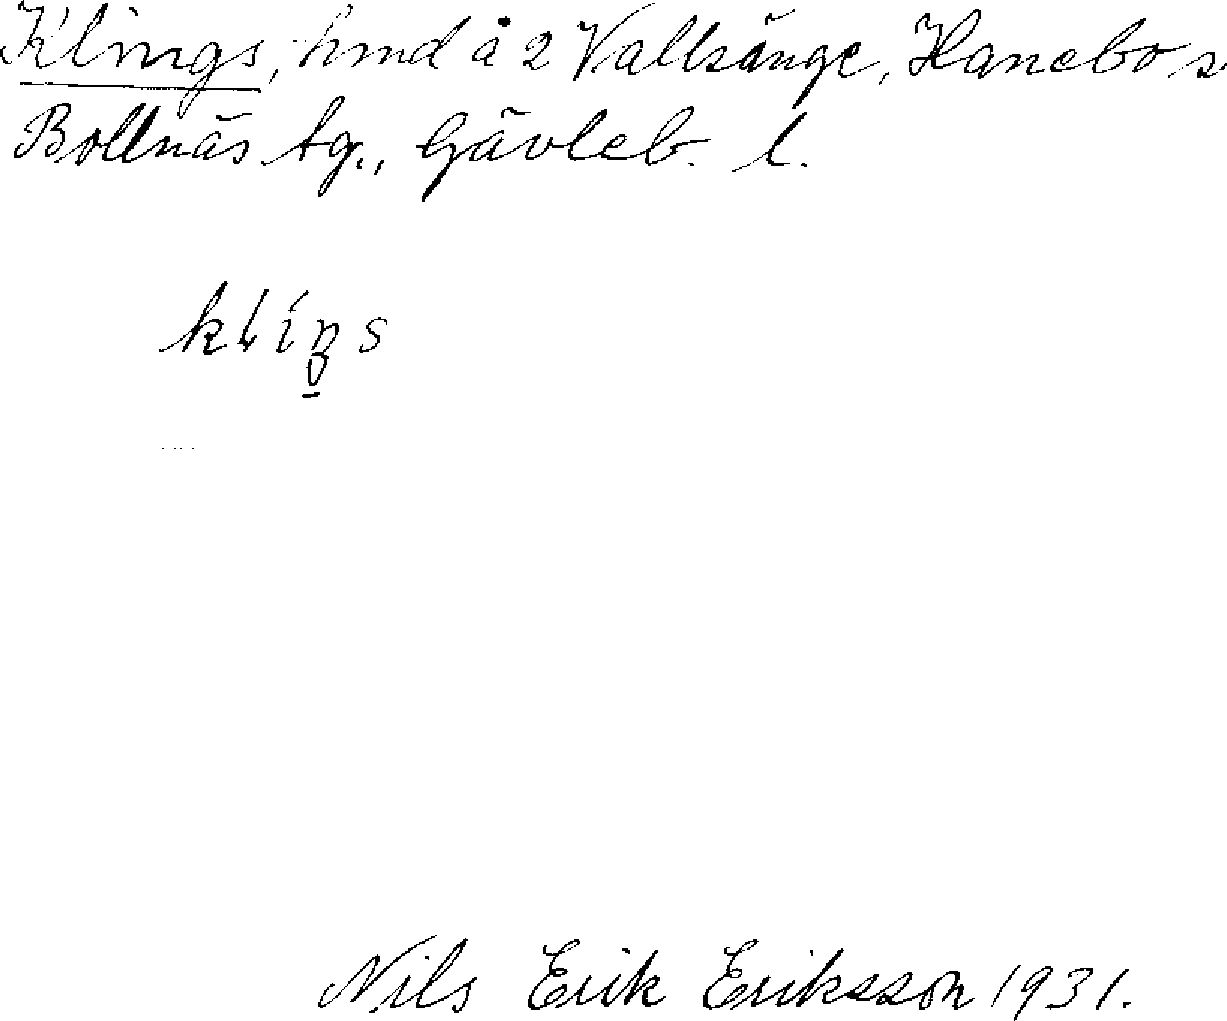 Klings, hmd å 2 Vallsänge, Hanebo s
Bollnäs tg., Gävleb. l.
klíŋs
Nils Erik Eriksson 1931.